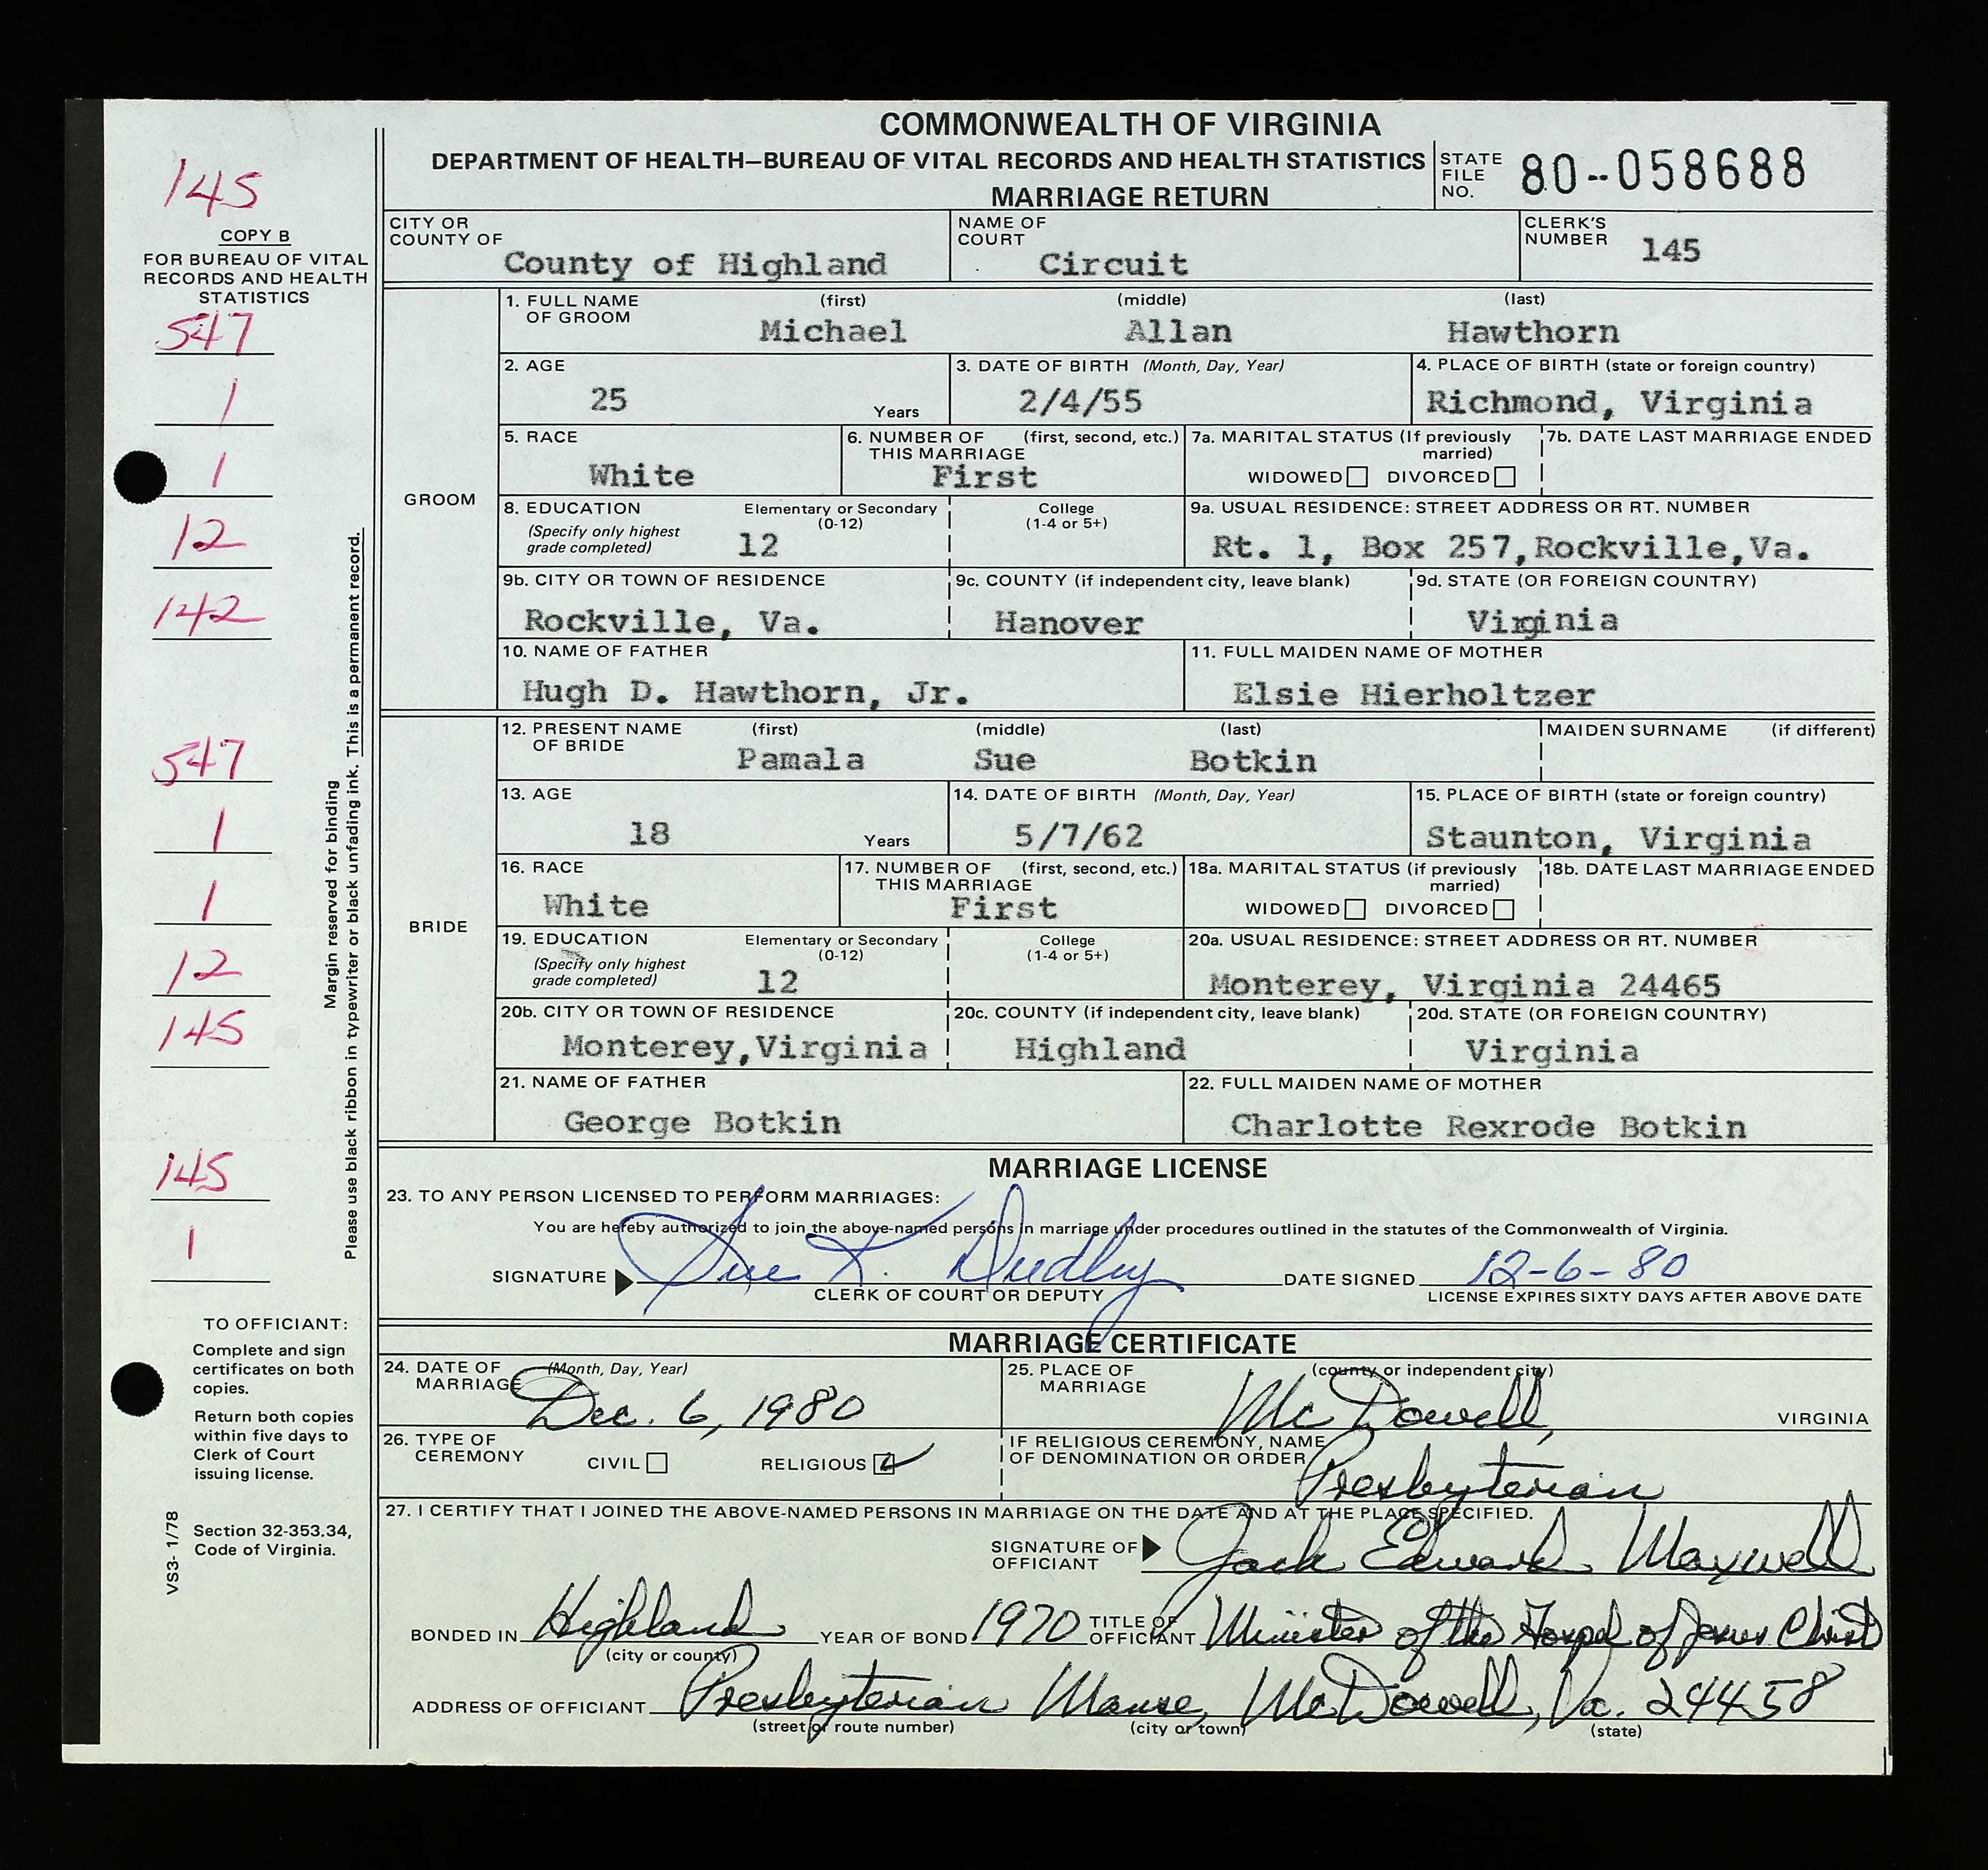 COMMONWEALTH OF VIRGINIA
DEPARTMENT OF HEALTH—BUREAU OF VITAL RECORDS AND HEALTH STATISTICS
MARRIAGE RETURN
STATE FILE NO. 80--058688
145
COPY B
FOR BUREAU OF VITAL
RECORDS AND HEALTH
STATISTICS
547
1
1
12
142
547
1
1
12
145
145
1
Margin reserved for binding
Please use black ribbon in typewriter or black unfading ink. This is a permanent record.
TO OFFICIANT:
Complete and sign
certificates on both
copies.
Return both copies
within five days to
Clerk of Court
issuing license.
Section 32-353.34,
Code of Virginia.
VS3- 1/78
CITY OR COUNTY OF County of Highland
NAME OF COURT Circuit
CLERK'S NUMBER 145
GROOM
1. FULL NAME OF GROOM (first) (middle) (last)
Michael Allan Hawthorn
2. AGE 25 Years
3. DATE OF BIRTH (Month, Day, Year) 2/4/55
4. PLACE OF BIRTH (state or foreign country) Richmond, Virginia
5. RACE White
6. NUMBER OF THIS MARRIAGE (first, second, etc.) First
7a. MARITAL STATUS (If previously married) WIDOWED DIVORCED
7b. DATE LAST MARRIAGE ENDED
8. EDUCATION (Specify only highest grade completed) Elementary or Secondary (0-12) 12 College (1-4 or 5+)
9a. USUAL RESIDENCE: STREET ADDRESS OR RT. NUMBER
Rt. 1, Box 257,Rockville,Va.
9b. CITY OR TOWN OF RESIDENCE Rockville, Va.
9c. COUNTY (if independent city, leave blank) Hanover
9d. STATE (OR FOREIGN COUNTRY) Virginia
10. NAME OF FATHER Hugh D. Hawthorn, Jr.
11. FULL MAIDEN NAME OF MOTHER Elsie Hierholtzer
BRIDE
12. PRESENT NAME OF BRIDE (first) (middle) (last) MAIDEN SURNAME (if different)
Pamala Sue Botkin
13. AGE 18 Years
14. DATE OF BIRTH (Month, Day, Year) 5/7/62
15. PLACE OF BIRTH (state or foreign country) Staunton, Virginia
16. RACE White
17. NUMBER OF THIS MARRIAGE (first, second, etc.) First
18a. MARITAL STATUS (if previously married) WIDOWED DIVORCED
18b. DATE LAST MARRIAGE ENDED
19. EDUCATION (Specify only highest grade completed) Elementary or Secondary (0-12) 12 College (1-4 or 5+)
20a. USUAL RESIDENCE: STREET ADDRESS OR RT. NUMBER
Monterey, Virginia 24465
20b. CITY OR TOWN OF RESIDENCE Monterey,Virginia
20c. COUNTY (if independent city, leave blank) Highland
20d. STATE (OR FOREIGN COUNTRY) Virginia
21. NAME OF FATHER George Botkin
22. FULL MAIDEN NAME OF MOTHER Charlotte Rexrode Botkin
MARRIAGE LICENSE
23. TO ANY PERSON LICENSED TO PERFORM MARRIAGES:
You are hereby authorized to join the above-named persons in marriage under procedures outlined in the statutes of the Commonwealth of Virginia.
SIGNATURE Sue K. Dudley DATE SIGNED 12-6-80
CLERK OF COURT OR DEPUTY LICENSE EXPIRES SIXTY DAYS AFTER ABOVE DATE
MARRIAGE CERTIFICATE
24. DATE OF MARRIAGE (Month, Day, Year) Dec. 6, 1980
25. PLACE OF MARRIAGE (county or independent city) McDowell, VIRGINIA
26. TYPE OF CEREMONY CIVIL RELIGIOUS ✓
IF RELIGIOUS CEREMONY, NAME OF DENOMINATION OR ORDER Presbyterian
27. I CERTIFY THAT I JOINED THE ABOVE-NAMED PERSONS IN MARRIAGE ON THE DATE AND AT THE PLACE SPECIFIED.
SIGNATURE OF OFFICIANT Jack Edward Maxwell
BONDED IN Highland (city or county) YEAR OF BOND 1970 TITLE OF OFFICIANT Minister of the Gospel of Jesus Christ
ADDRESS OF OFFICIANT Presbyterian Manse, McDowell, Va. 24458
(street or route number) (city or town) (state)